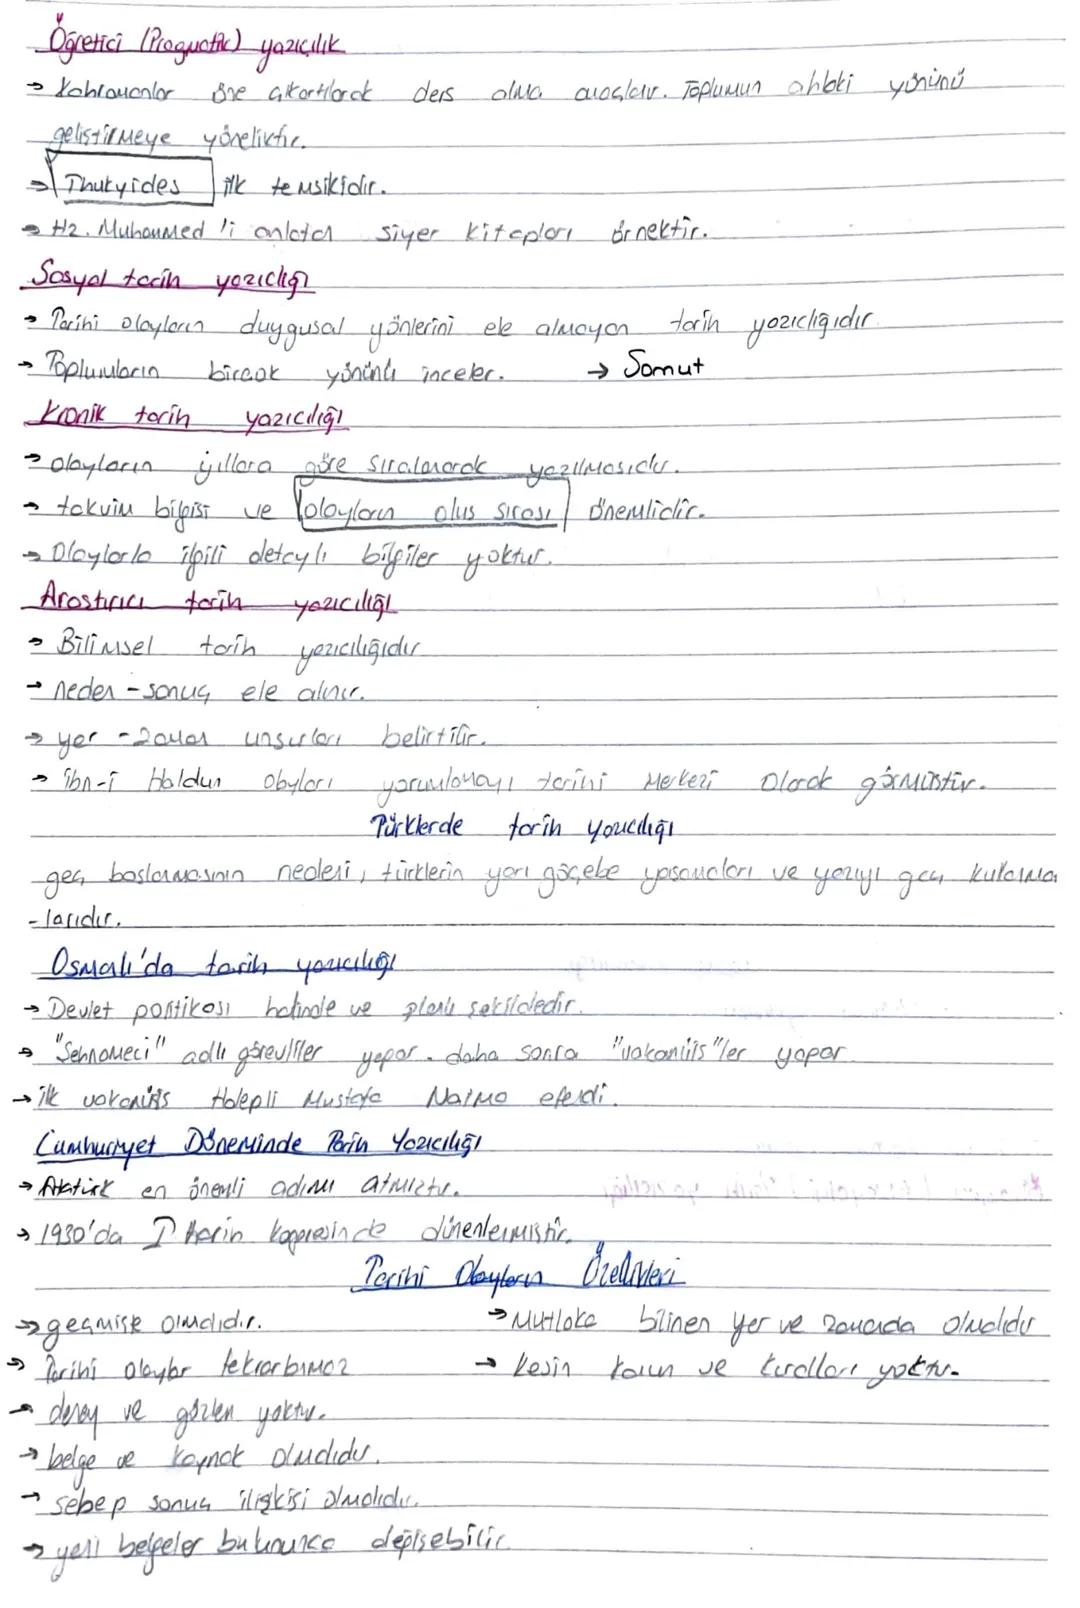 Öğretici (Pragmatik) yazıcılık
→ Kahramanlar öne çıkartılarak ders alma amaçlanır. Toplumun ahlaki yönünü
geliştirmeye yöneliktir.
→ Thukyides ilk temsilcidir.
→ Hz. Muhammed'i anlatan siyer kitapları örnektir.
Sosyal tarih yazıcılığı
→ Tarihi olayların duygusal yönlerini ele almayan tarih yazıcılığıdır.
→ Toplumların birçok yönünü inceler. → Somut
Kronik tarih yazıcılığı
→ olayların yıllara göre sıralanarak yazılmasıdır.
→ takvim bilgisi ve olayların oluş sırası önemlidir.
→ Olaylarla ilgili detaylı bilgiler yoktur.
Araştırıcı tarih yazıcılığı
→ Bilimsel tarih yazıcılığıdır
→ neden - sonuç ele alınır.
→ yer - zaman unsurları belirtilir.
→ ibn-i Haldun olayları yorumlamayı tarihi merkezi olarak görmüştür.
Türklerde tarih yazıcılığı
geç başlamasının nedeni, türklerin yarı göçebe yaşamaları ve yazıyı geç kullanma
-larıdır.
Osmanlı'da tarih yazıcılığı
→ Devlet politikası halinde ve planlı şekildedir.
→ "Şehnameci" adlı görevliler yapar. daha sonra "vakanüis"ler yapar.
→ ilk vakanüis Halepli Mustafa Naima efendi.
Cumhuriyet Döneminde Tarih Yazıcılığı
→ Atatürk en önemli adımı atmıştır.
→ 1930'da I Tarih kongresinde düzenlenmiştir.
Tarihi Olayların Özellikleri
→ geçmişte olmalıdır. → Mutlaka bilinen yer ve zamanda olmalıdır
→ Tarihi olaylar tekrarlanmaz → kesin kanun ve kuralları yoktur.
→ deney ve gözlem yoktur.
→ belge ve kaynak olmalıdır.
→ sebep sonuç ilişkisi olmalıdır.
→ yeni belgeler bulununca değişebilir.